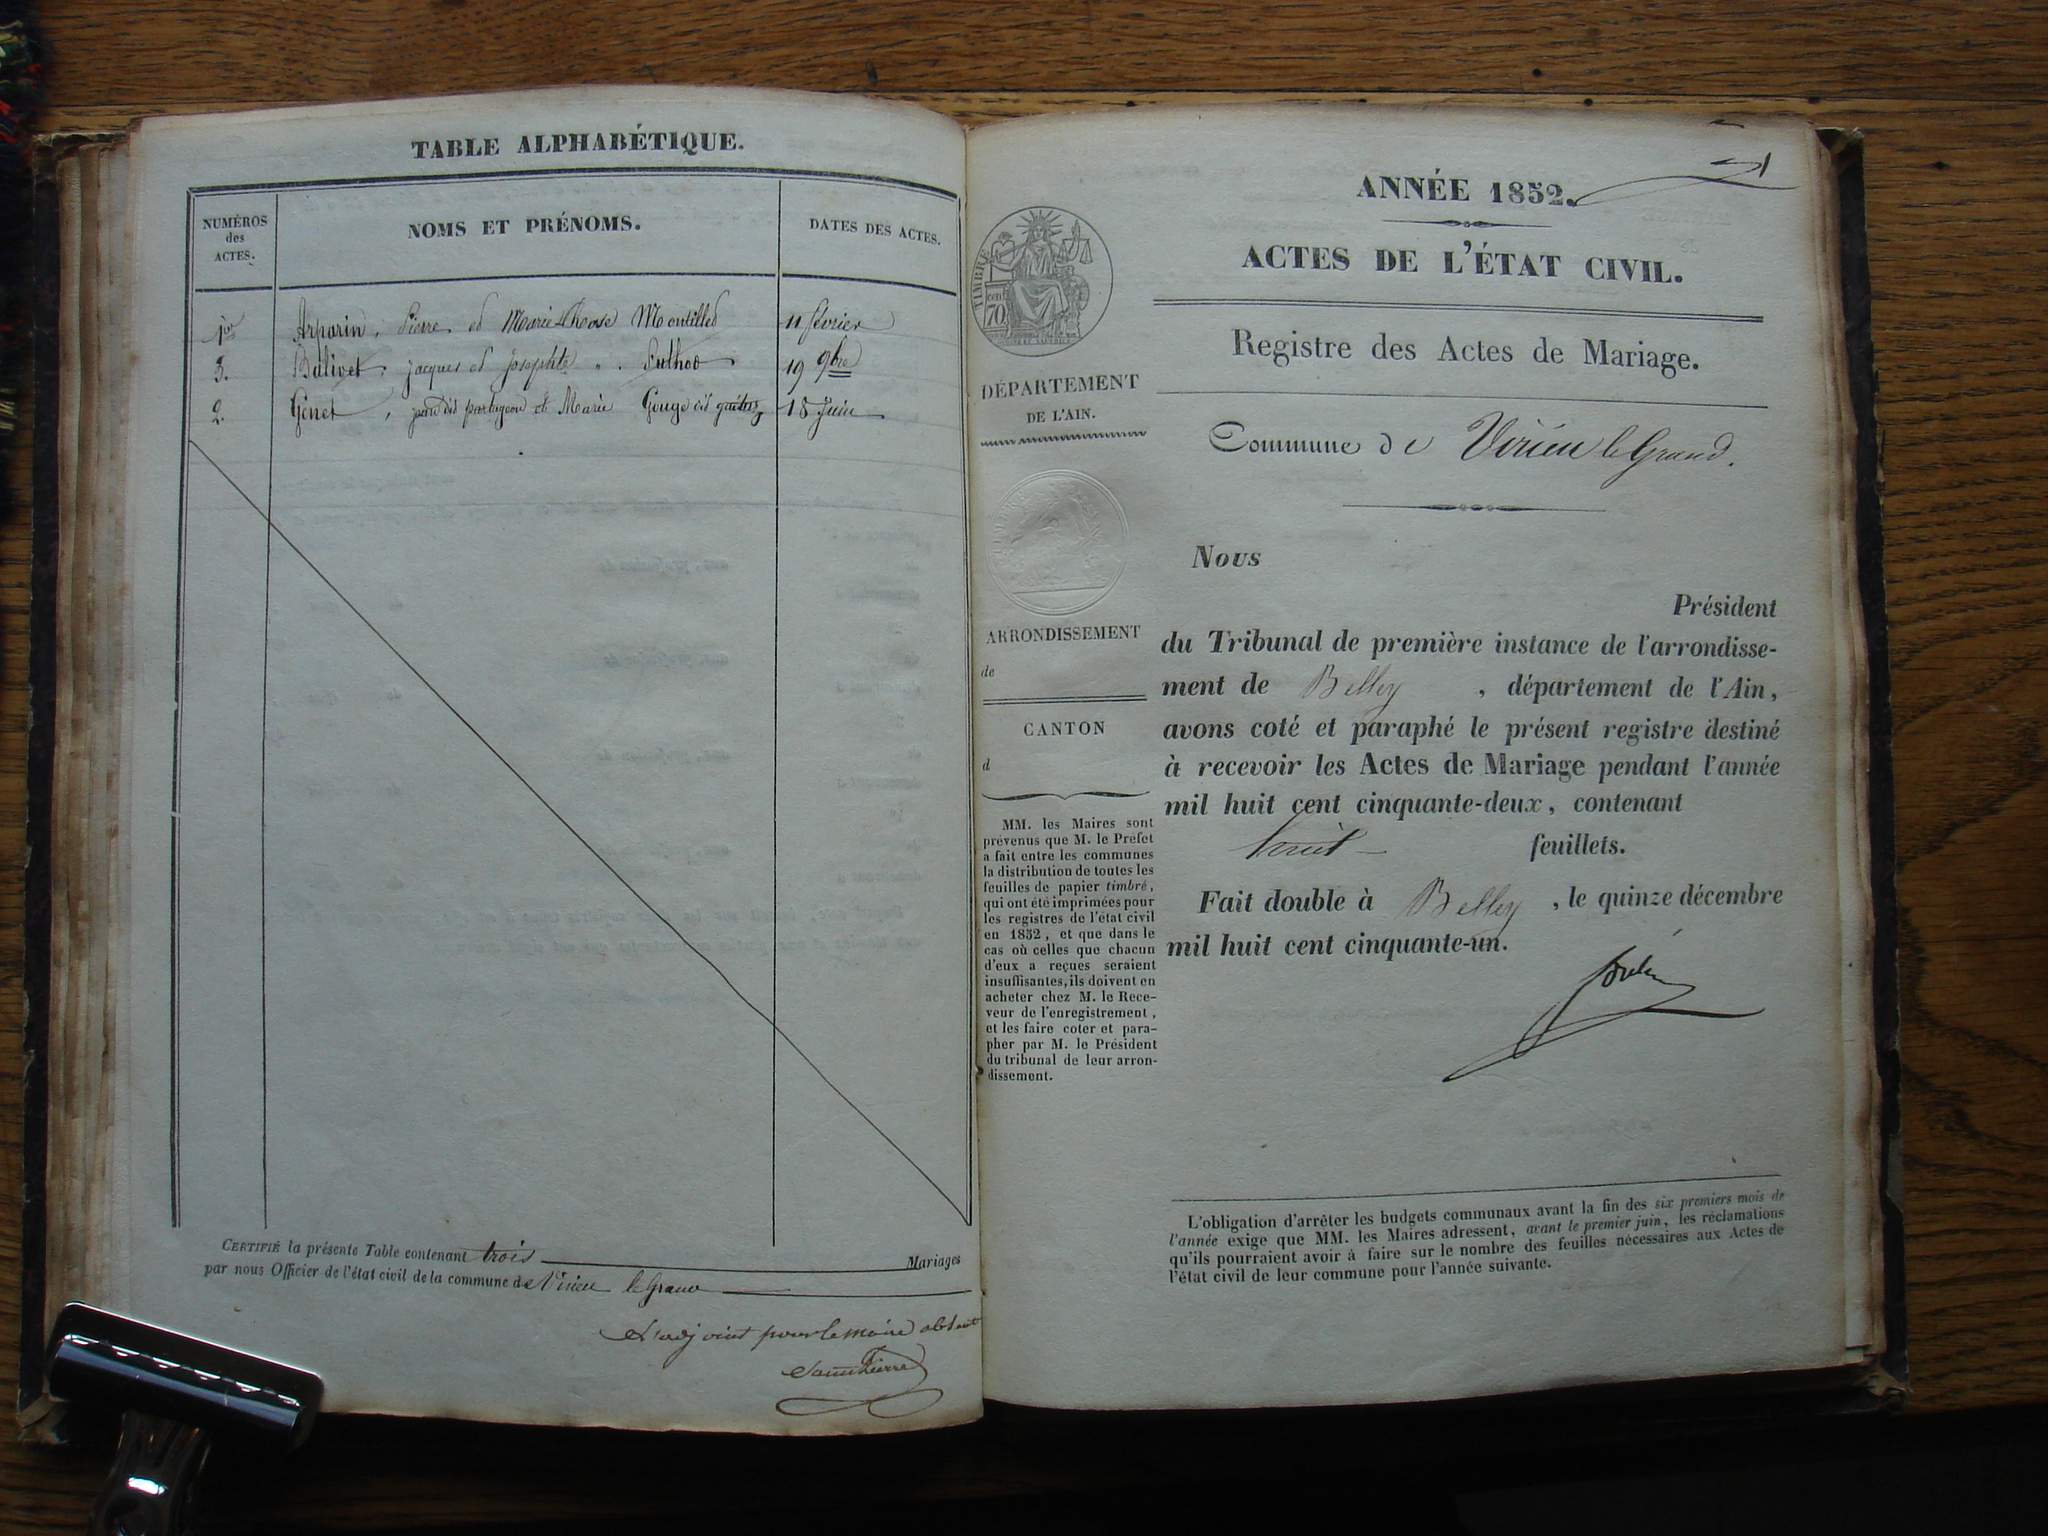 TABLE ALPHABÉTIQUE.
NUMÉROS
des
ACTES.
NOMS ET PRÉNOMS.
DATES DES ACTES.
1er Arparin, Pierre et Marie Montillet 11 février
3. Balivet, jacques et Josephte 19 9bre
2. Genet, jean dit et Marie Gouge dit 18 Juin
CERTIFIÉ la présente Table contenant trois Mariages
par nous Officier de l'état civil de la commune de Virieu le Grand
L'adjoint pour le maire absent
1
ANNÉE 1852.
ACTES DE L'ÉTAT CIVIL.
Registre des Actes de Mariage.
Commune de Virieu le Grand.
TIMBRE
cent
70
DÉPARTEMENT
DE L'AIN.
ARRONDISSEMENT
de
CANTON
d
MM. les Maires sont
prévenus que M. le Préfet
a fait entre les communes
la distribution de toutes les
feuilles de papier timbré,
qui ont été imprimées pour
les registres de l'état civil
en 1852, et que dans le
cas où celles que chacun
d'eux a reçues seraient
insuffisantes, ils doivent en
acheter chez M. le Rece-
veur de l'enregistrement,
et les faire coter et para-
pher par M. le Président
du tribunal de leur arron-
dissement.
Nous
Président
du Tribunal de première instance de l'arrondisse-
ment de Belley, département de l'Ain,
avons coté et paraphé le présent registre destiné
à recevoir les Actes de Mariage pendant l'année
mil huit cent cinquante-deux, contenant
huit feuillets.
Fait double à Belley, le quinze décembre
mil huit cent cinquante-un.
L'obligation d'arrêter les budgets communaux avant la fin des six premiers mois de
l'année exige que MM. les Maires adressent, avant le premier juin, les réclamations
qu'ils pourraient avoir à faire sur le nombre des feuilles nécessaires aux Actes de
l'état civil de leur commune pour l'année suivante.